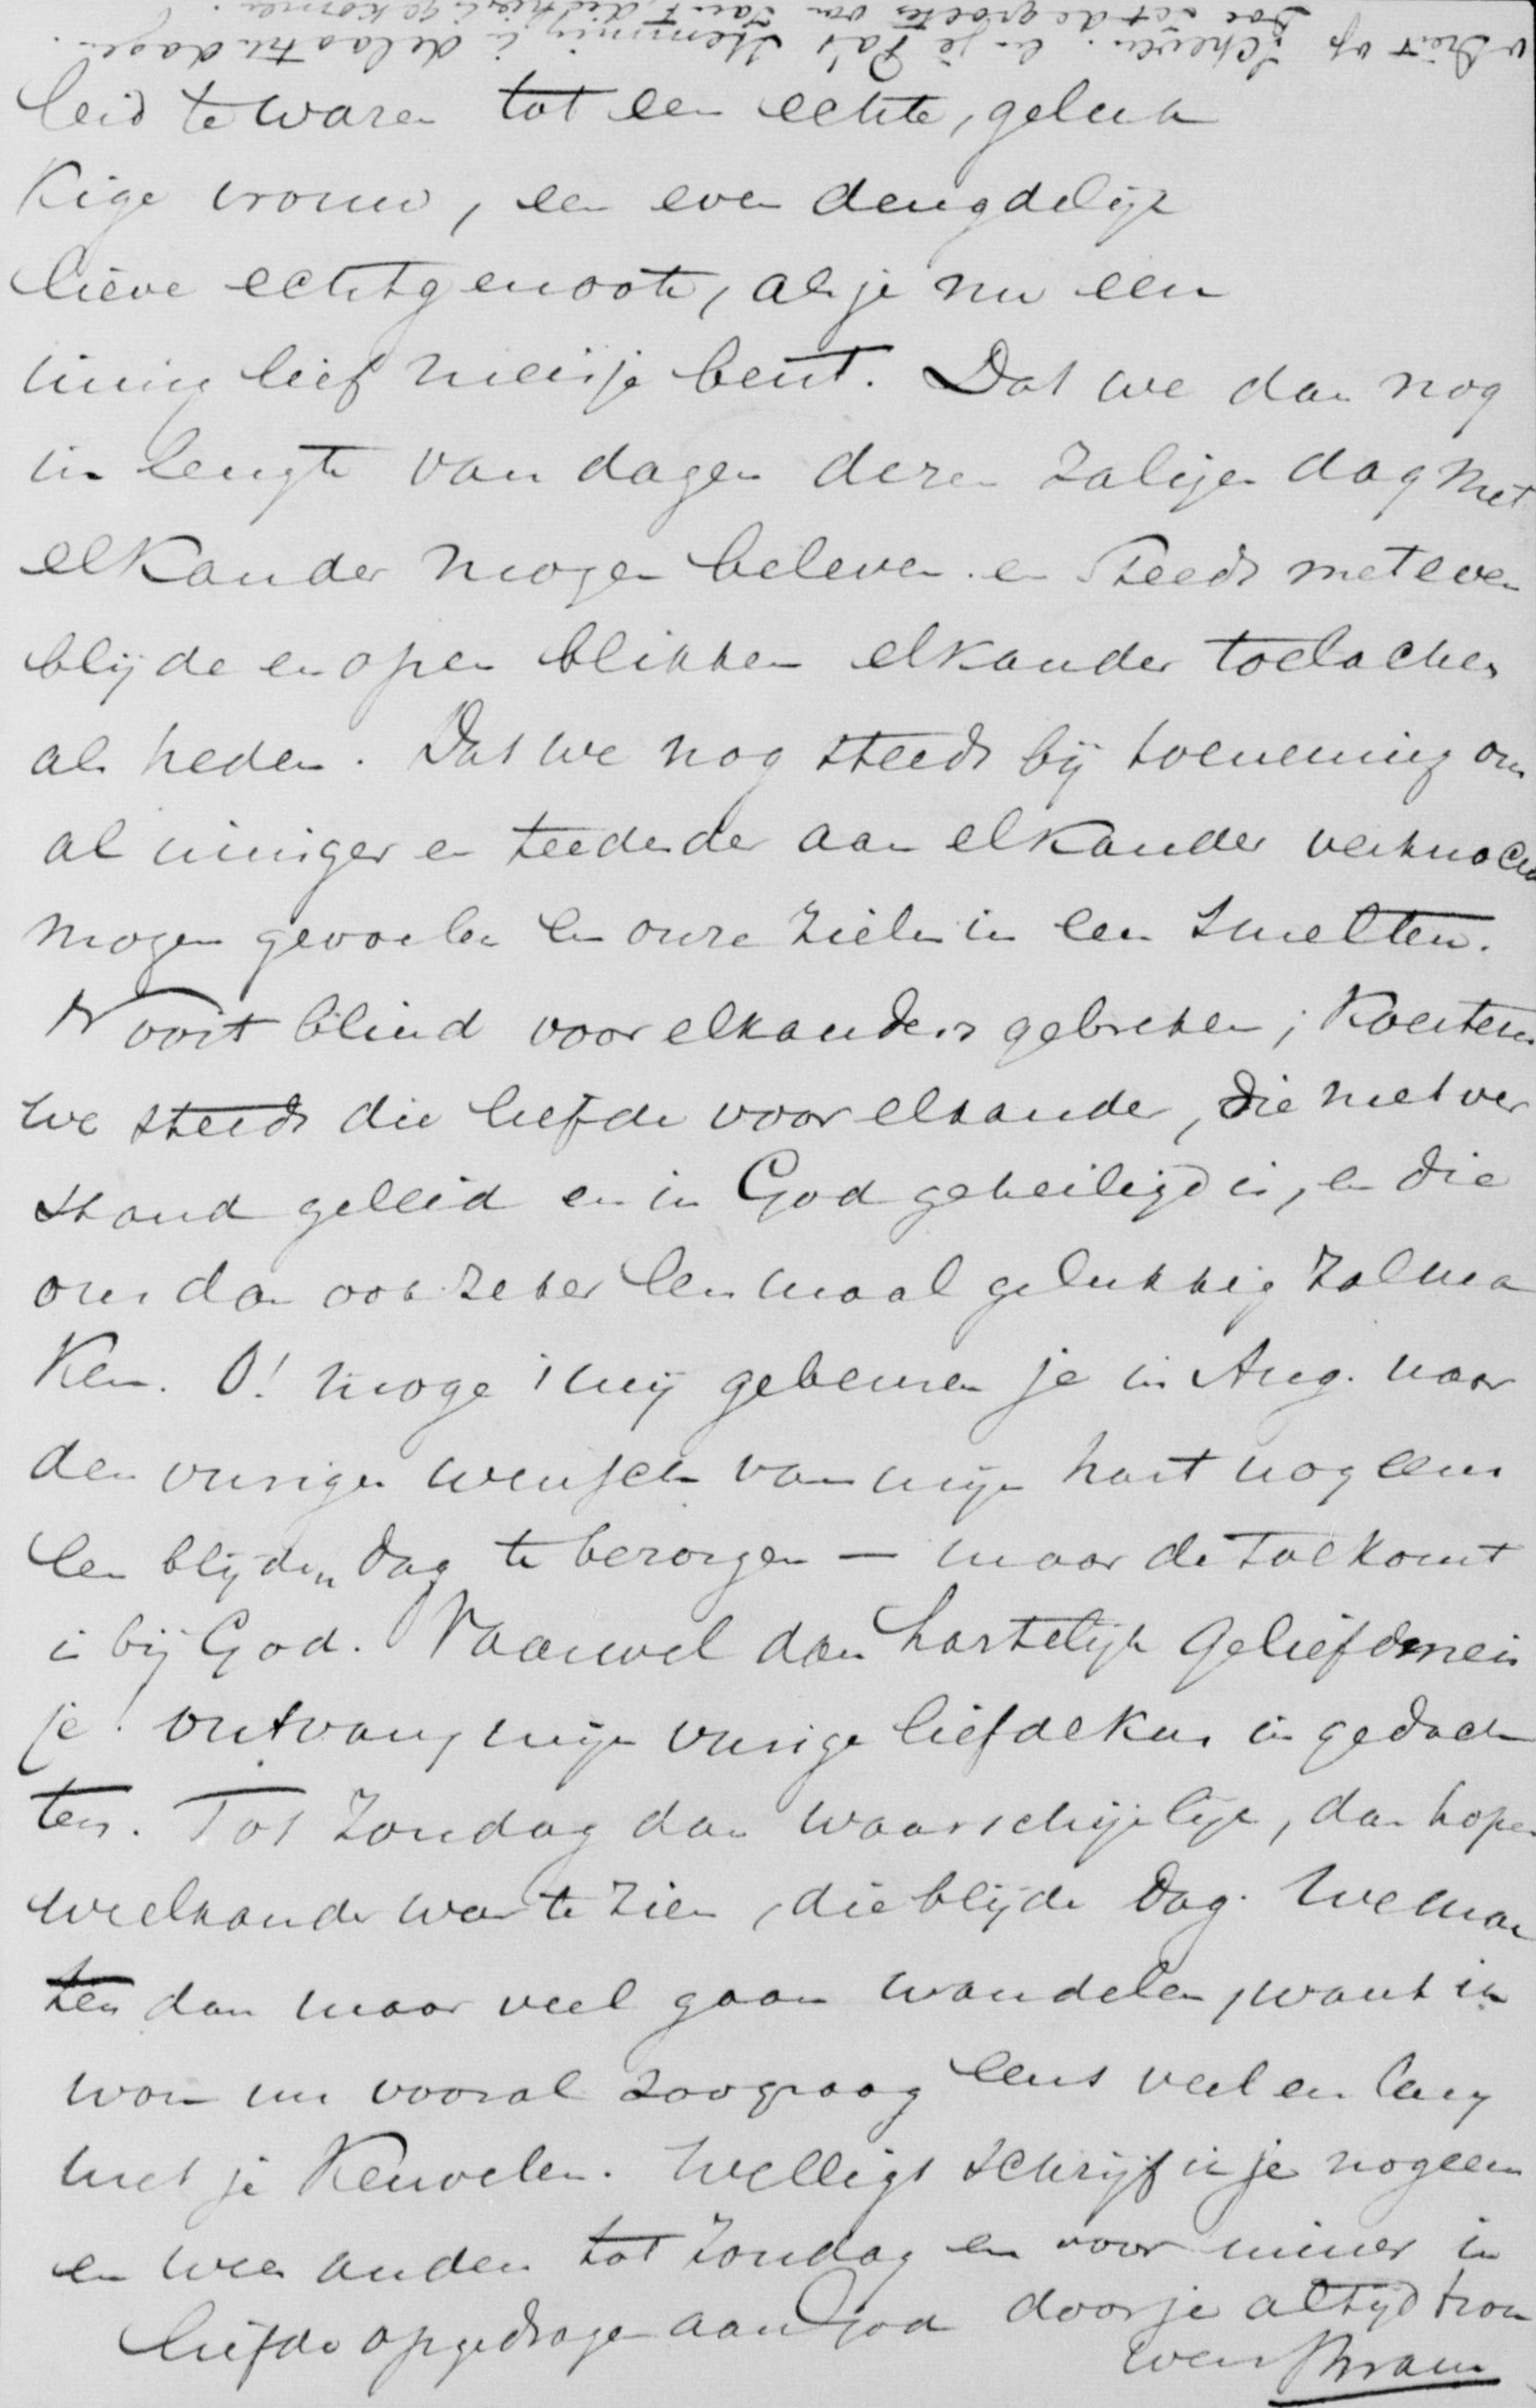 leid te waren tot een echte, geluk
kige vrouw, een even deugdelijk
lieve echtgenoote, als je nu een
innig lief meisje bent. Dat we dan nog
in lengte van dagen dezen zaligen dag met
elkander mogen beleven en steeds met even
blijde en open blikken elkander toelachen
als heden. Dat we nog steeds bij toeneming ons
al inniger en teederder aan elkander verknocht
mogen gevoelen en onze zielen in een smelten.
Nooit blind voor elkanders gebreken; Koesteren
we steeds die liefde voor elkander, die met ver
stand geleid en in God geheiligd is, en die
ons dan ook zeker eenmaal gelukkig zal ma
ken. O! moge 't mij gebeuren je in Aug. naar
den vurigen wensch van mijn hart nog eens
een blijden dag te bezorgen — maar de toekomst
is bij God. Vaarwel dan hartelijk Geliefd meis
je! ontvang mijn vurige liefdekus in gedach
ten. Tot Zondag dan waarschijnlijk, dan hopen
we elkander weer te zien, die blijde dag. We moe
ten dan maar veel gaan wandelen, want ik
wou nu vooral zoo graag eens veel en lang
met je Keuvelen. Welligt schrijf ik je nog eens
en wees anders tot Zondag en voor immer in
liefde opgedragen aan God door je altijd trou
wen Bram
v Driet op Scheven. en je Pa's stemming in de laatste dagen.
Doe de groeten van Tante, die hier is gekomen.